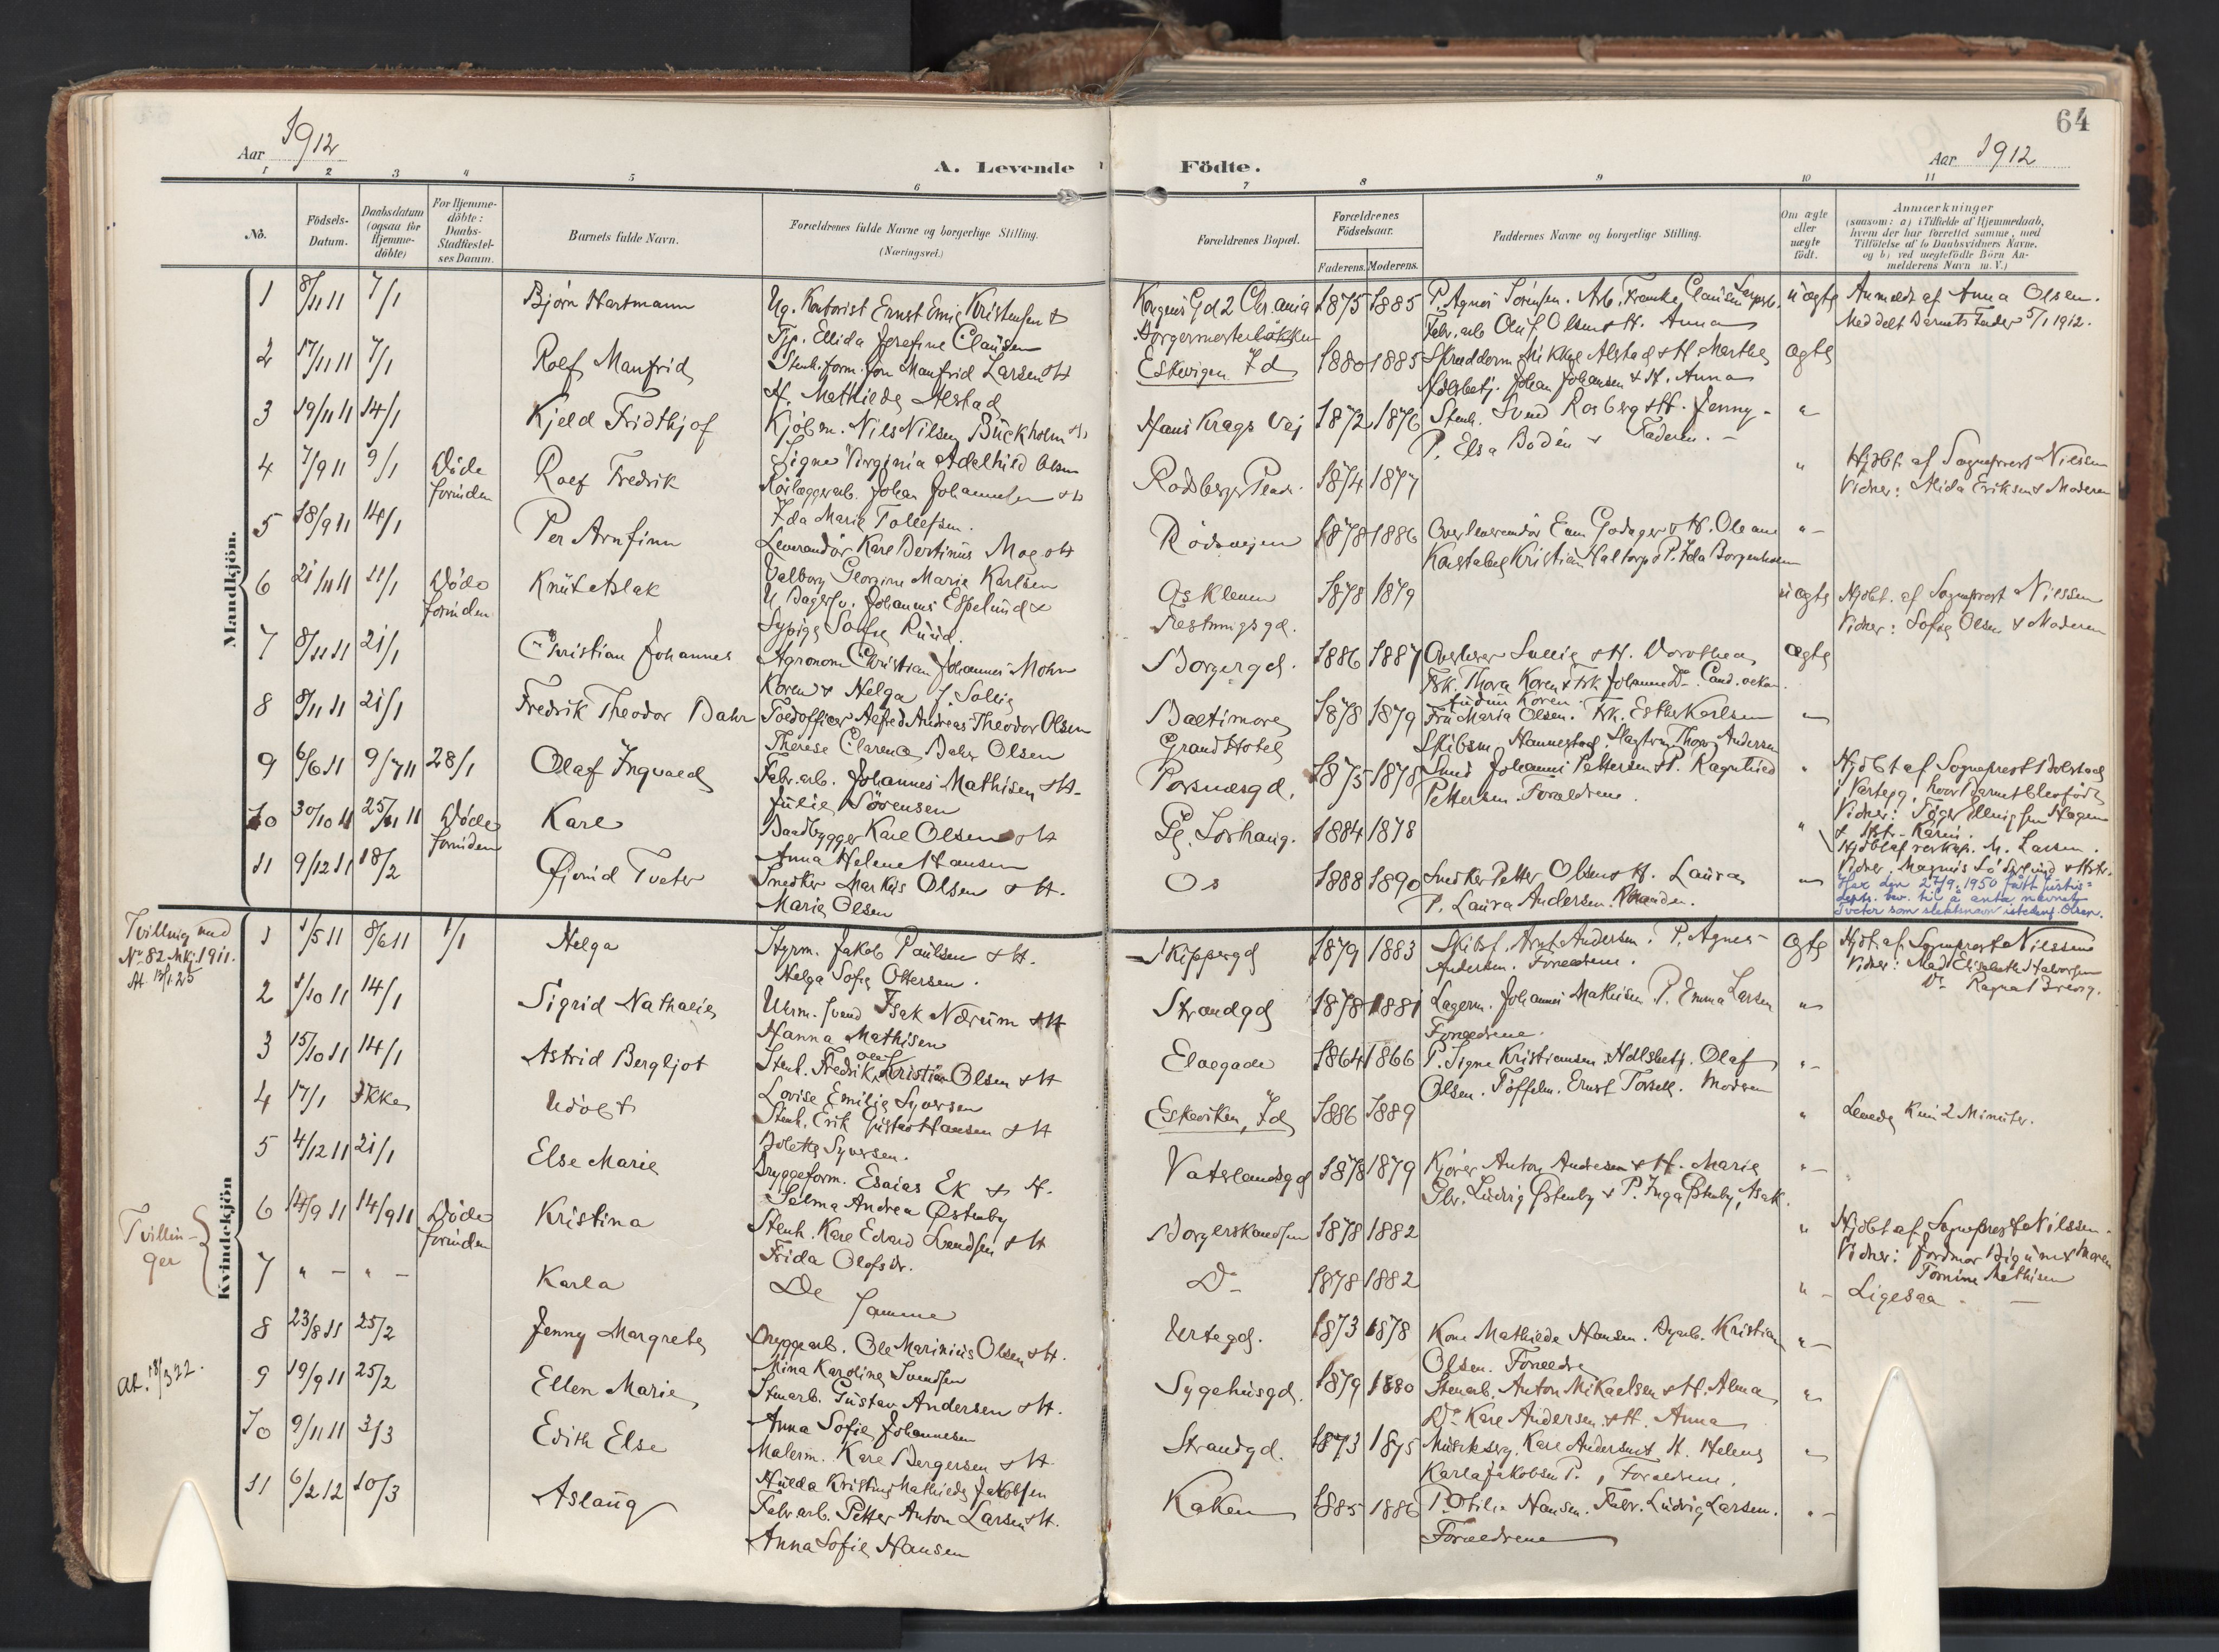 64
Aar 1912
A. Levende Födte.
Aar 1912
1 2 3 4 5 6 7 8 9 10 11
No.
Födsels-Datum.
Daabsdatum (ogsaa for Hjemme-döbte)
For Hjemme-döbte: Daabs-Stadfæstel-ses Datum.
Barnets fulde Navn.
Forældrenes fulde Navne og borgerlige Stilling. (Næringsvei.)
Forældrenes Bopæl.
Forældrenes Födselsaar.
Faderens. Moderens.
Faddernes Navne og borgerlige Stilling.
Om ægte eller uægte født.
Anmærkninger
(saasom: a) i Tilfælde af Hjemmedaab,
hvem der har forrettet samme, med
Tilföielse af to Daabsvidners Navne.
og b) ved uægtefödte Börn An-
melderens Navn m. V.)
Mandkjön.
1 8/11 11 7/1 Bjørn Hartmann Ug. Kontorist Ernst Emil Kristensen & Kongens Gd 2 Chr.ania 1875 1885 P. Agnes Sörensen. Arb. Clausen uægte Anmeldt af Anna Olsen.
Tjp. Ellida Josefine Clausen Fabr. arb Oluf Olsen & H. Anna Meddelt Barnets Fader 5/1 1912.
2 17/11 11 7/1 Rolf Manfrid Stenh. form. Jon Manfrid Larsen & H Eskevigen Id 1880 1885 Skredderm Mikkel Alstad & H. Marthe ægte
H. Mathilde Alstad Johan Johansen & H. Anna
3 19/11 11 14/1 Kjeld Fridthjof Kjøbm. Nils Nilsen Buckholm & H Hans Krags Vej 1872 1876 Stenh. Svend Rosberg & H. Jenny - "
Signe Virginia Adelheid Olsen P. Elsa Bodén & Faderen. -
4 7/9 11 9/1 Døde forinden Rolf Fredrik Rörlæggerarb. Johan Johannesen & H Rødsberg 1874 1877 " Hjdbt. af Sogneprest Nilssen
Ida Marie Tollefsen. Vidner: Alida Eriksen & Moderen
5 18/9 11 14/1 Per Arnfinn Leverandör Karl Bertinius Moe & H Rödsvejen 1878 1886 Godager & H. Oleane " -
Valborg Georgine Marie Karlsen Konstabel Kristian Haltorp & P. Ida Borgenhaven
6 21/11 11 11/1 Døde forinden Knut Aslak U. Johannes Espelund & Asklem 1878 1879 uægte Hjdbt. af Sogneprest Nilssen
Sypige Sofie Ruud. Festningsgd. Vidner: Sofie Olsen & Moderen
7 8/11 11 21/1 Christian Johannes Agronom Christian Johannes Mohr Borgergd. 1886 1887 Overlærer Sollie & H. Dorothea ægte
Koren & Helga J. Sollie Frk. Thora Koren & Frk Johanne Do. Cand. oekon.
Audun Koren.
8 8/11 11 21/1 Fredrik Theodor Dahr Toldofficer Alfred Andreas Theodor Olsen Baltimore 1878 1879 Fru Maria Olsen. Frk. Esther Karlsen "
Therese Clarence Dahr Olsen Grand Hotel Skibsm. Hannestad. Thorv. Andersen
9 6/6 11 9/7 11 28/1 Olaf Ingvald Fabr. arb. Johannes Mathisen & H. Porsnæsgd. 1875 1878 Johannes Pettersen & P. Ragnhild " Hjdbt af Sogneprest Bolstad
Julie Sörensen Pettersen. Forældrene. i Varteig, hvor Barnet blev født
Vidner: Hagen
10 30/10 11 25/11 11 Døde forinden Kare Baadbygger Karl Olsen & H Gl. Torhaug. 1884 1878 " & Hstr. Karen.
Anna Helene Hansen Hjdbt af M. Larsen.
11 9/12 11 18/2 Øjvind Tveter Snedker Markus Olsen & H. Os 1888 1890 Snedker Petter Olsen & H. Laura " Vidner, Magnus & Hstr.
Marie Olsen P. Laura Andersen. Har den 27/9. 1950 fått justis-
dept. bev. til å anta navnet
Tveter som slektsnavn istedenf. Olsen.
Kvindekjön
Tvilling med
No. 82 Mkj. 1911.
At 13/1 25
1 1/5 11 8/6 11 1/1 Helga Styrm. Jakob Paulsen & H. Skippergd 1879 1883 Skibsf. Arnt Andersen. P. Agnes - ægte Hjdt. af Sogneprest Nilssen
Helga Sofie Ottersen. Andersen. Forældrene. Vidner: Mad Elisabeth Halvorsen
Do Ragna Breorg.
2 1/10 11 14/1 Sigrid Nathalie Urm. Svend Isak Nærum & H Strandgd 1878 1881 Lagerm. Johannes Mathisen P. Emma Larsen "
Hanna Mathisen Forældrene.
3 15/10 11 14/1 Astrid Bergljot Stenh. Fredrik Ole Kristian Olsen & H Elvegade 1864 1866 P. Signe Kristiansen. Hdlsbetj. Olaf " -
Lovise Emilie Syversen Olsen. Töffelm. Ernst Torsell. Moderen
4 17/1 Ikke Udøbt Stenh. Erik Gustav Hansen & H Eskeviken, Id 1886 1889 " Levede Kun 2 Minuter.
Bolette Syversen.
5 4/12 11 21/1 Else Marie Bryggeform. Esaias Ek & H. Vaterlandsgd 1878 1879 Kjører Anton Andresen & H. Marie " -
Selma Andrea Østenby Ludvig Østenby & P. Inga Østenby, Isak.
Tvillin-
ger
6 14/9 11 14/9 11 Døde forinden Kristina Stenh. Karl Edvard Svendsen & H Borgerskandsen 1878 1882 " Hjdbt af Sogneprest Nilssen.
Frida Olofsdr. Vidner: Jordmor & Maren
Tomine Mathisen
7 " - " - Karla De Samme Do 1878 1882 " - Ligesaa -
8 23/8 11 25/2 Jenny Margrete Bryggearb. Ole Marinius Olsen & H. Urtegd. 1873 1878 Kone Mathilde Hansen. Kristian " -
Mina Karoline Svendsen Olsen. Forældre
At. 18/3 22.
9 19/9 11 25/2 Ellen Marie Stenarb. Gustav Andersen & H. Sygehusgd. 1879 1880 Stenarb. Anton Mikaelsen & H. Alma "
Anna Sofie Johannesen Do Karl Andersen & H. Anna
10 9/11 11 3/3 Edith Else Malerm. Karl Bergersen & H Strandgd. 1873 1875 Karl Andersen & H. Helene "
Hulda Kristine Mathilde Jakobsen Karla Jakobsen P., Forældrene.
11 6/2 12 10/3 Aslaug Fabr. arb. Petter Anton Larsen & H. Kaken 1885 1886 P. Otilie Hansen. Fabr. Ludvig Larsen. " -
Anna Sofie Hansen Forældrene